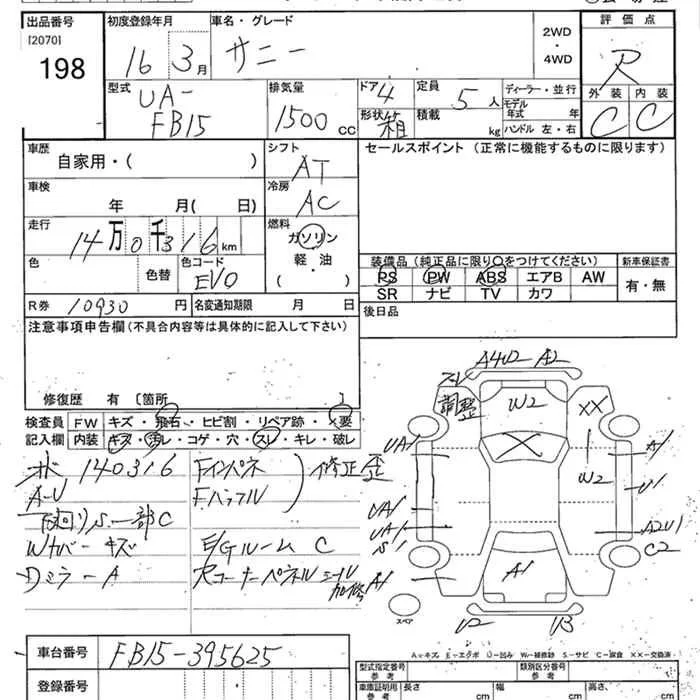 出品番号
[2070]
198
初度登録年月
16 3月
車名・グレード
サニー
2WD
・
4WD
評価点
R
外装 内装
C C
型式
UA-
FB15
排気量
1500 cc
ドア 4
形状 箱
定員
5人
積載
kg
ディーラー・並行
モデル年式 年
ハンドル 左・右
車歴
自家用・( )
シフト
AT
セールスポイント (正常に機能するものに限ります)
車検
年 月( 日)
冷房
AC
走行
14万0千316km
燃料
ガソリン
軽・油
( )
色
色替
色コード
EV0
装備品(純正品に限り○をつけてください)
新車保証書
PS PW ABS エアB AW
SR ナビ TV カワ
有・無
R券 10930円
名変通知期限 月 日
後日品
注意事項申告欄(不具合内容等は具体的に記入して下さい)
修復歴 有 〔箇所 〕
検査員
記入欄
FW キズ・飛石・ヒビ割・リペア跡・×要
内装 キズ・汚レ・コゲ・穴・スレ・キレ・破レ
140316
A-U
下回りS.一部C
Wカバーキズ
Dミラ-A
Fインパネ
E/Gルーム C
Rコーナーパネル シール
加修
A4U2 A2
調整
W2
XX
UA1
A1
W2
U1
UA1
UA1
S1
A2U1
C2
A1
A1
スペア
U2
U3
A=キズ E=エクボ U=凹み W=補修跡 S=サビ C=腐食 XX=交換済
車台番号
FB15-395625
登録番号
型式指定番号
参考
類別区分番号
参考
車庫証明用
参考
長さ cm
幅 cm
高さ cm